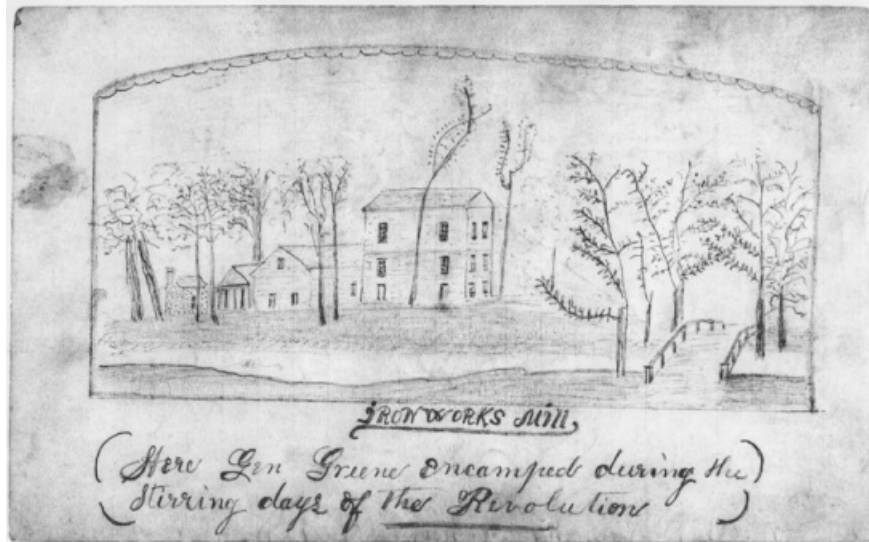 IRON WORKS Mill,
(Here Gen Greene encamped during the)
(Stirring days of the Revolution)